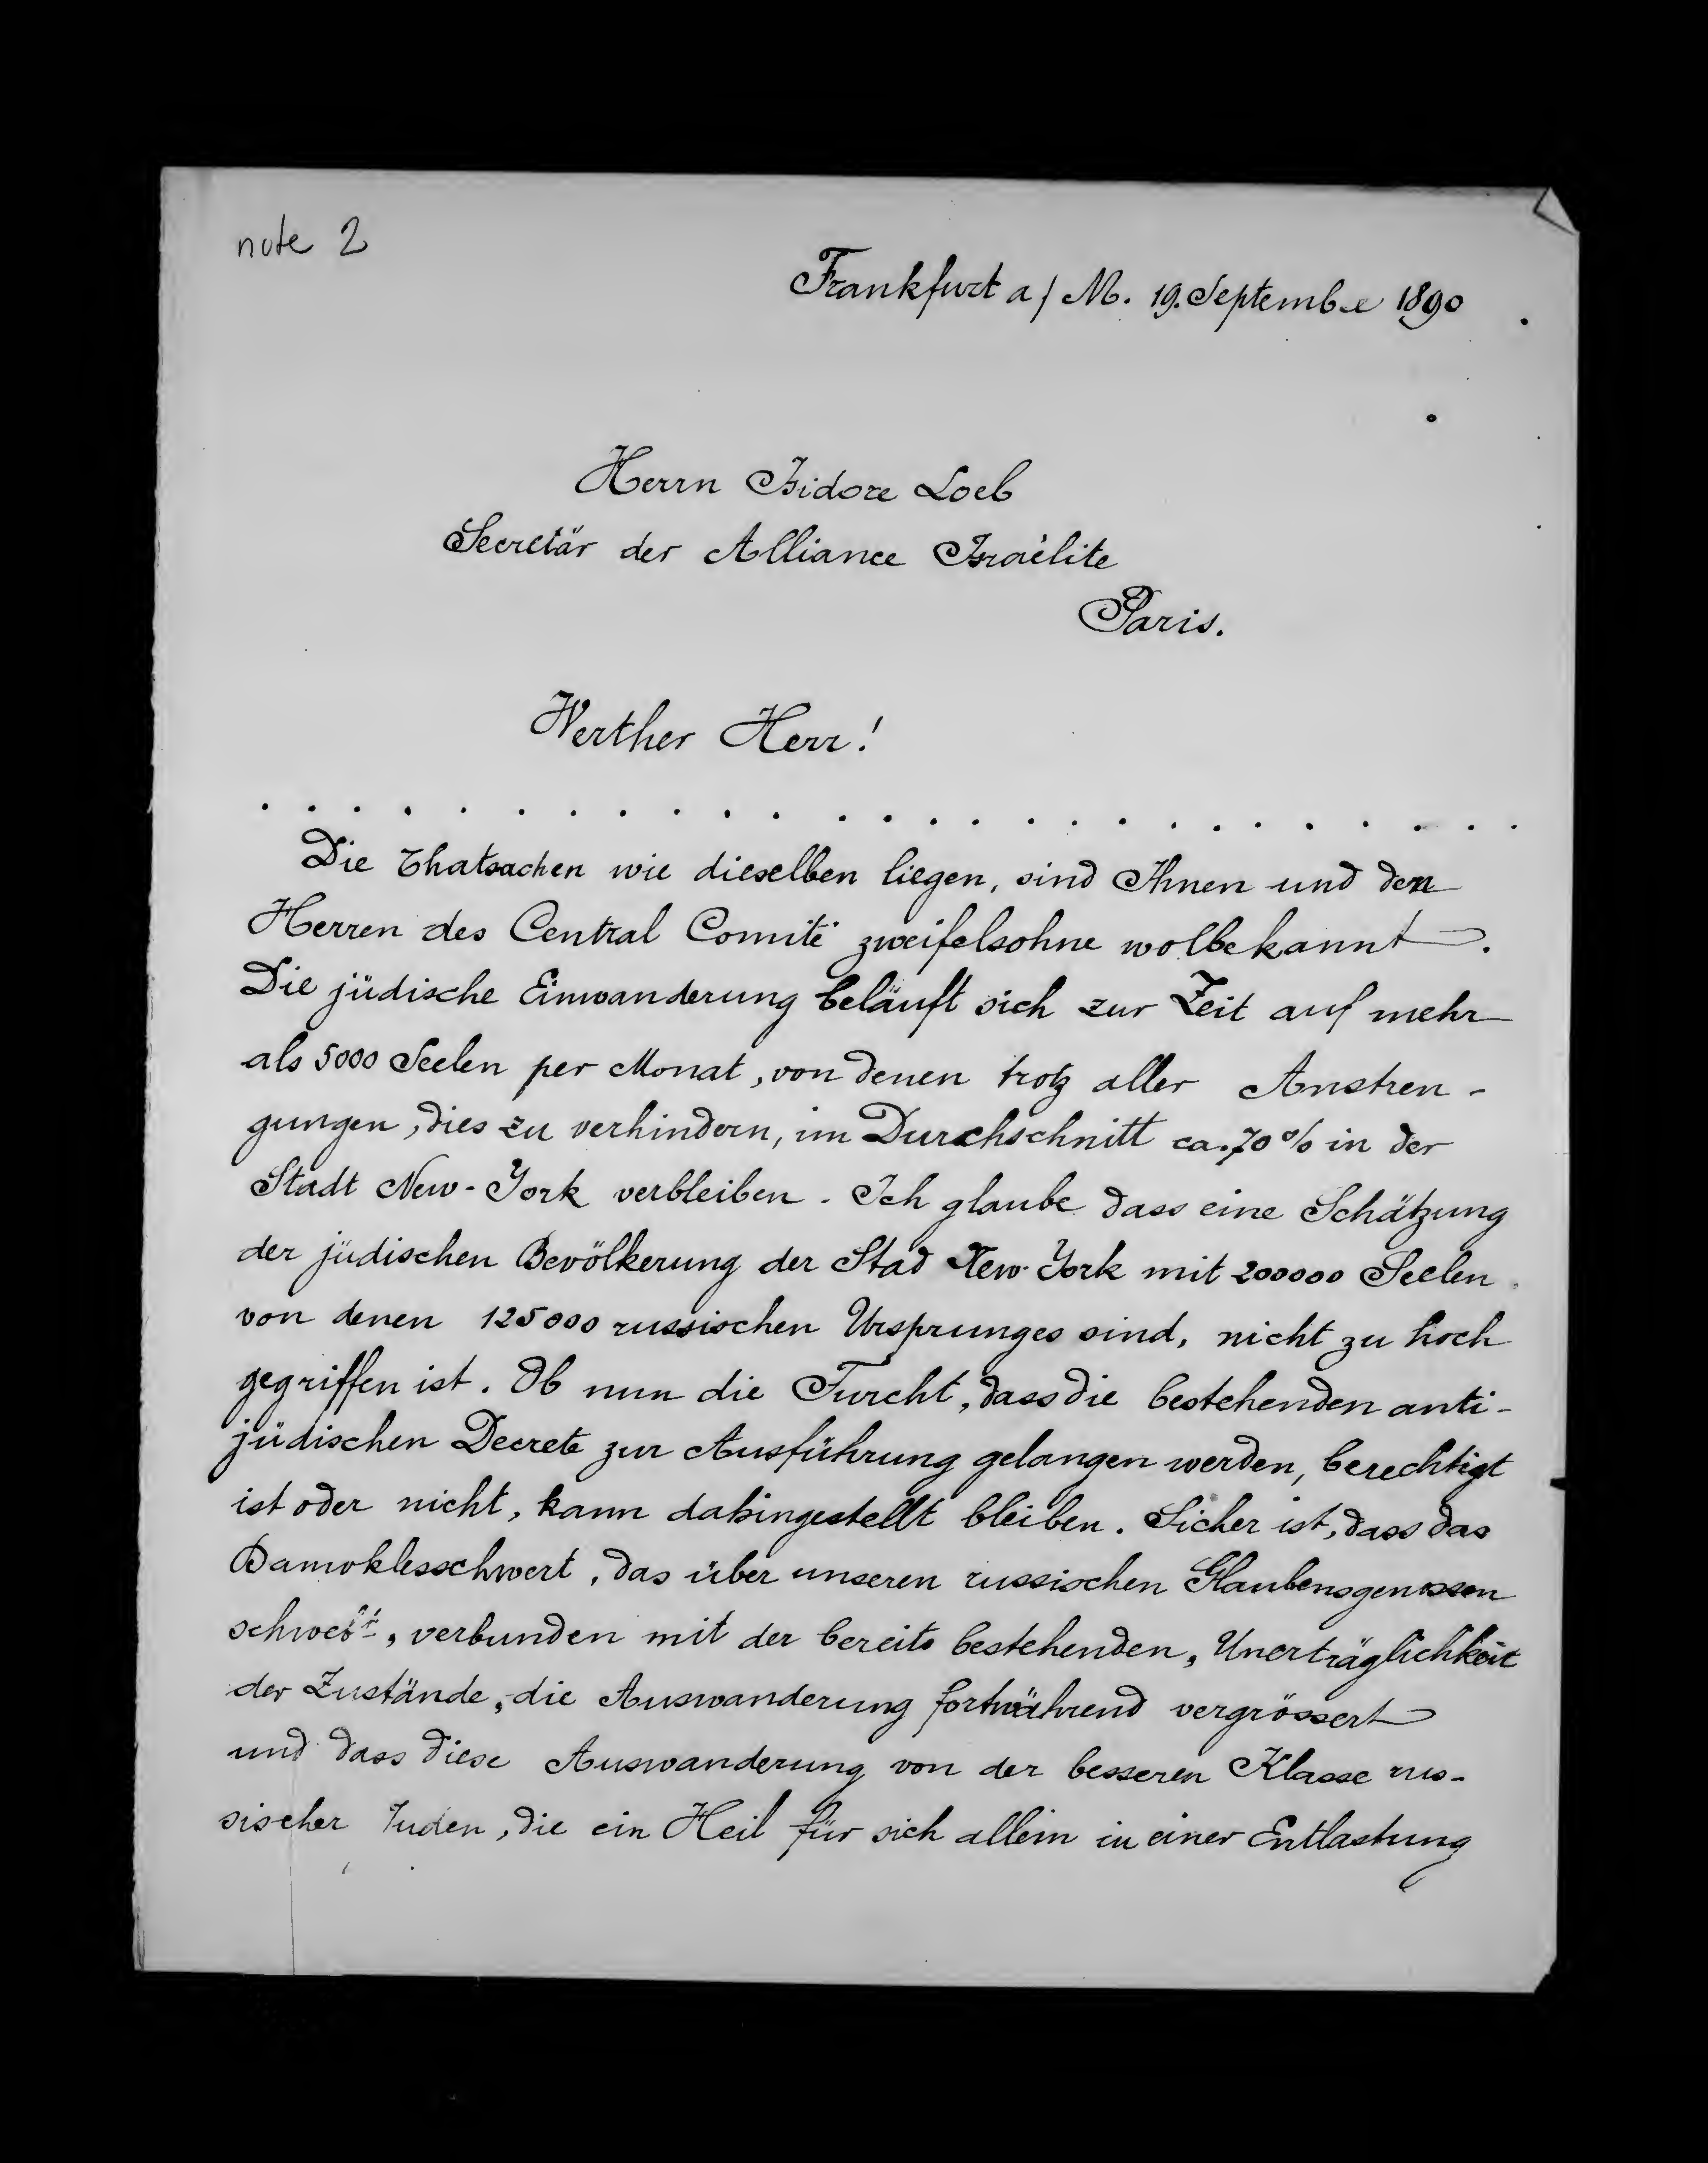 note 2
Frankfurt a/M. 19. Septembe 1890
Herrn Isidore Loeb
Secretär der Alliance Israèlite
Paris.
Werther Herr!
. . . . . . . . . . . . . . . . . . . . . . . . . .
Die Thatsachen wie dieselben liegen, sind Ihnen und den
Herren des Central Comité zweifelsohne wolbekannt.
Die jüdische Einwanderung beläuft sich zur Zeit auf mehr
als 5000 Seelen per Monat, von denen trotz aller Anstren-
gungen, dies zu verhindern, im Durchschnitt ca. 70% in der
Stadt New-York verbleiben. Ich glaube dass eine Schätzung
der jüdischen Bevölkerung der Stad New-York mit 200000 Seelen
von denen 125000 russischen Ursprunges sind, nicht zu hoch
gegriffen ist. Ob nun die Furcht, dass die bestehenden anti-
jüdischen Decrete zur Ausführung gelangen werden, berechtigt
ist oder nicht, kann dahingestellt bleiben. Sicher ist, dass das
Damoklesschwert, das über unseren russischen Glaubensgenossen
schwebt, verbunden mit der bereits bestehenden, Unerträglichkeit
der Zustände, die Auswanderung fortwährend vergrössert
und dass diese Auswanderung von der besseren Klasse rus-
sischer Juden, die ein Heil für sich allein in einer Entlastung